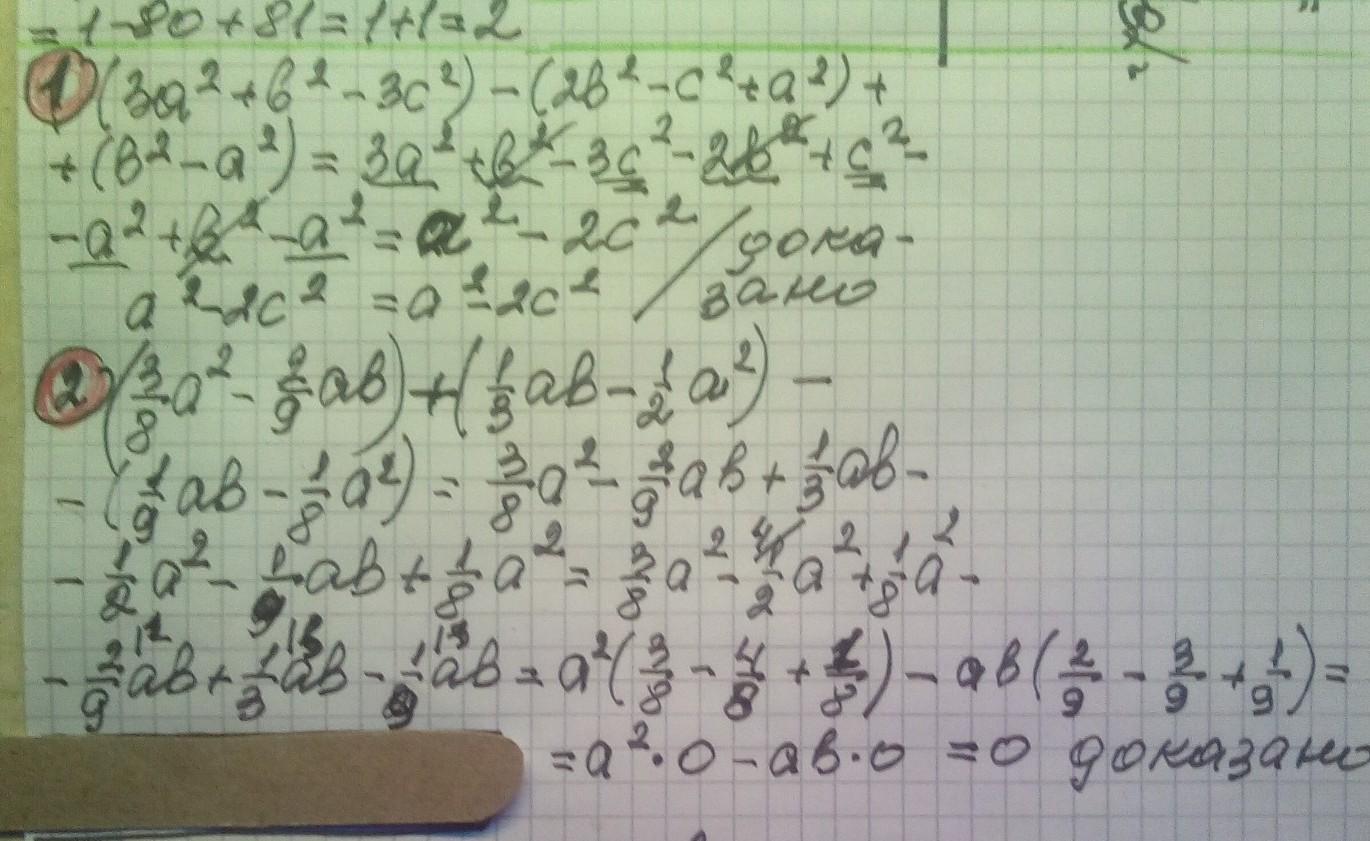 = 1-80+81=1+1=2
1 (3a²+b²-3c²)-(2b²-c²+a²)+
+(b²-a²)=3a²+b²-3c²-2b²+c²-
-a²+b²-a²=a²-2c² / дока-
a²-2c²=a²-2c² / зано
2 (3/8a²-2/9ab)+(1/3ab-1/2a²)-
-(1/9ab-1/8a²)=3/8a²-2/9ab+1/3ab-
-1/2a²-1/9ab+1/8a²=3/8a²-1/2a²+1/8a²-
-2/9ab+1/3ab-1/9ab=a²(3/8-4/8+1/8)-ab(2/9-3/9+1/9)=
=a²·0-ab·0=0 доказано